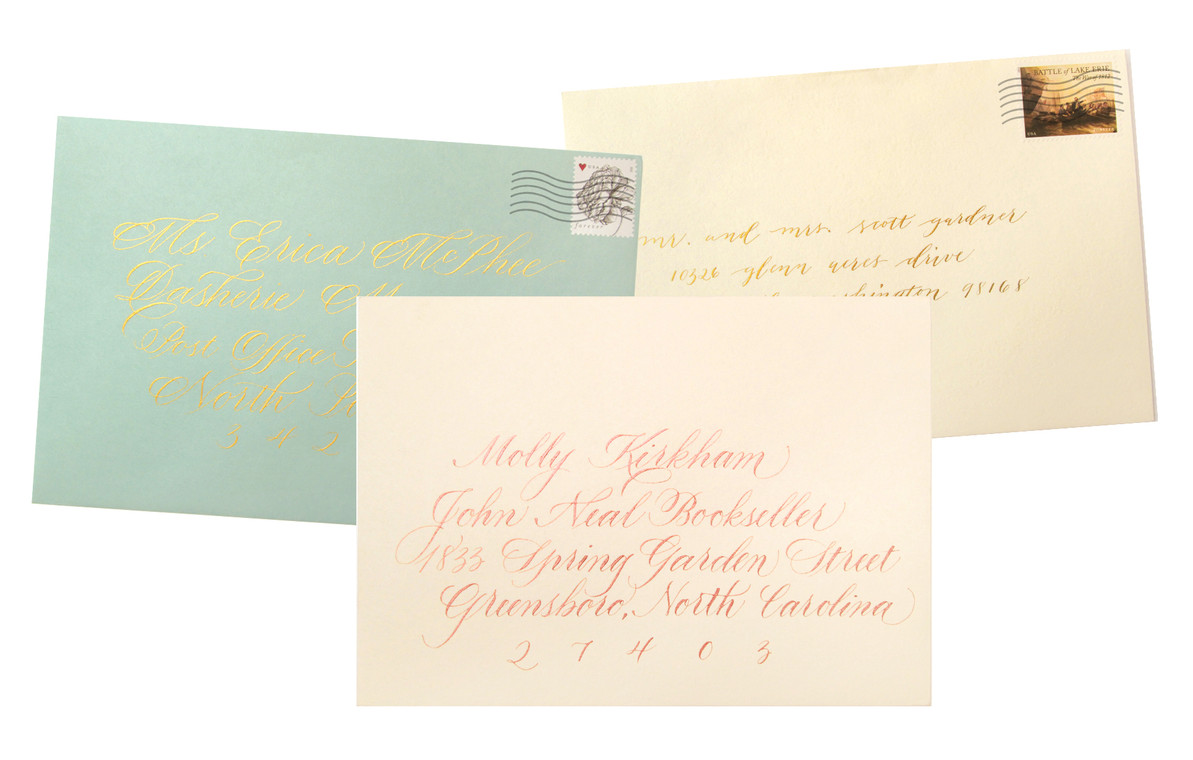 Ms Erica McPhee
Dasherie
Post Office
North
3 4 2
USA
forever
BATTLE of LAKE ERIE
The War of 1812
USA
FOREVER
mr. and mrs. scott gardner
10326 glenn acres drive
washington 98168
Molly Kirkham
John Neal Bookseller
1833 Spring Garden Street
Greensboro, North Carolina
2 7 4 0 3